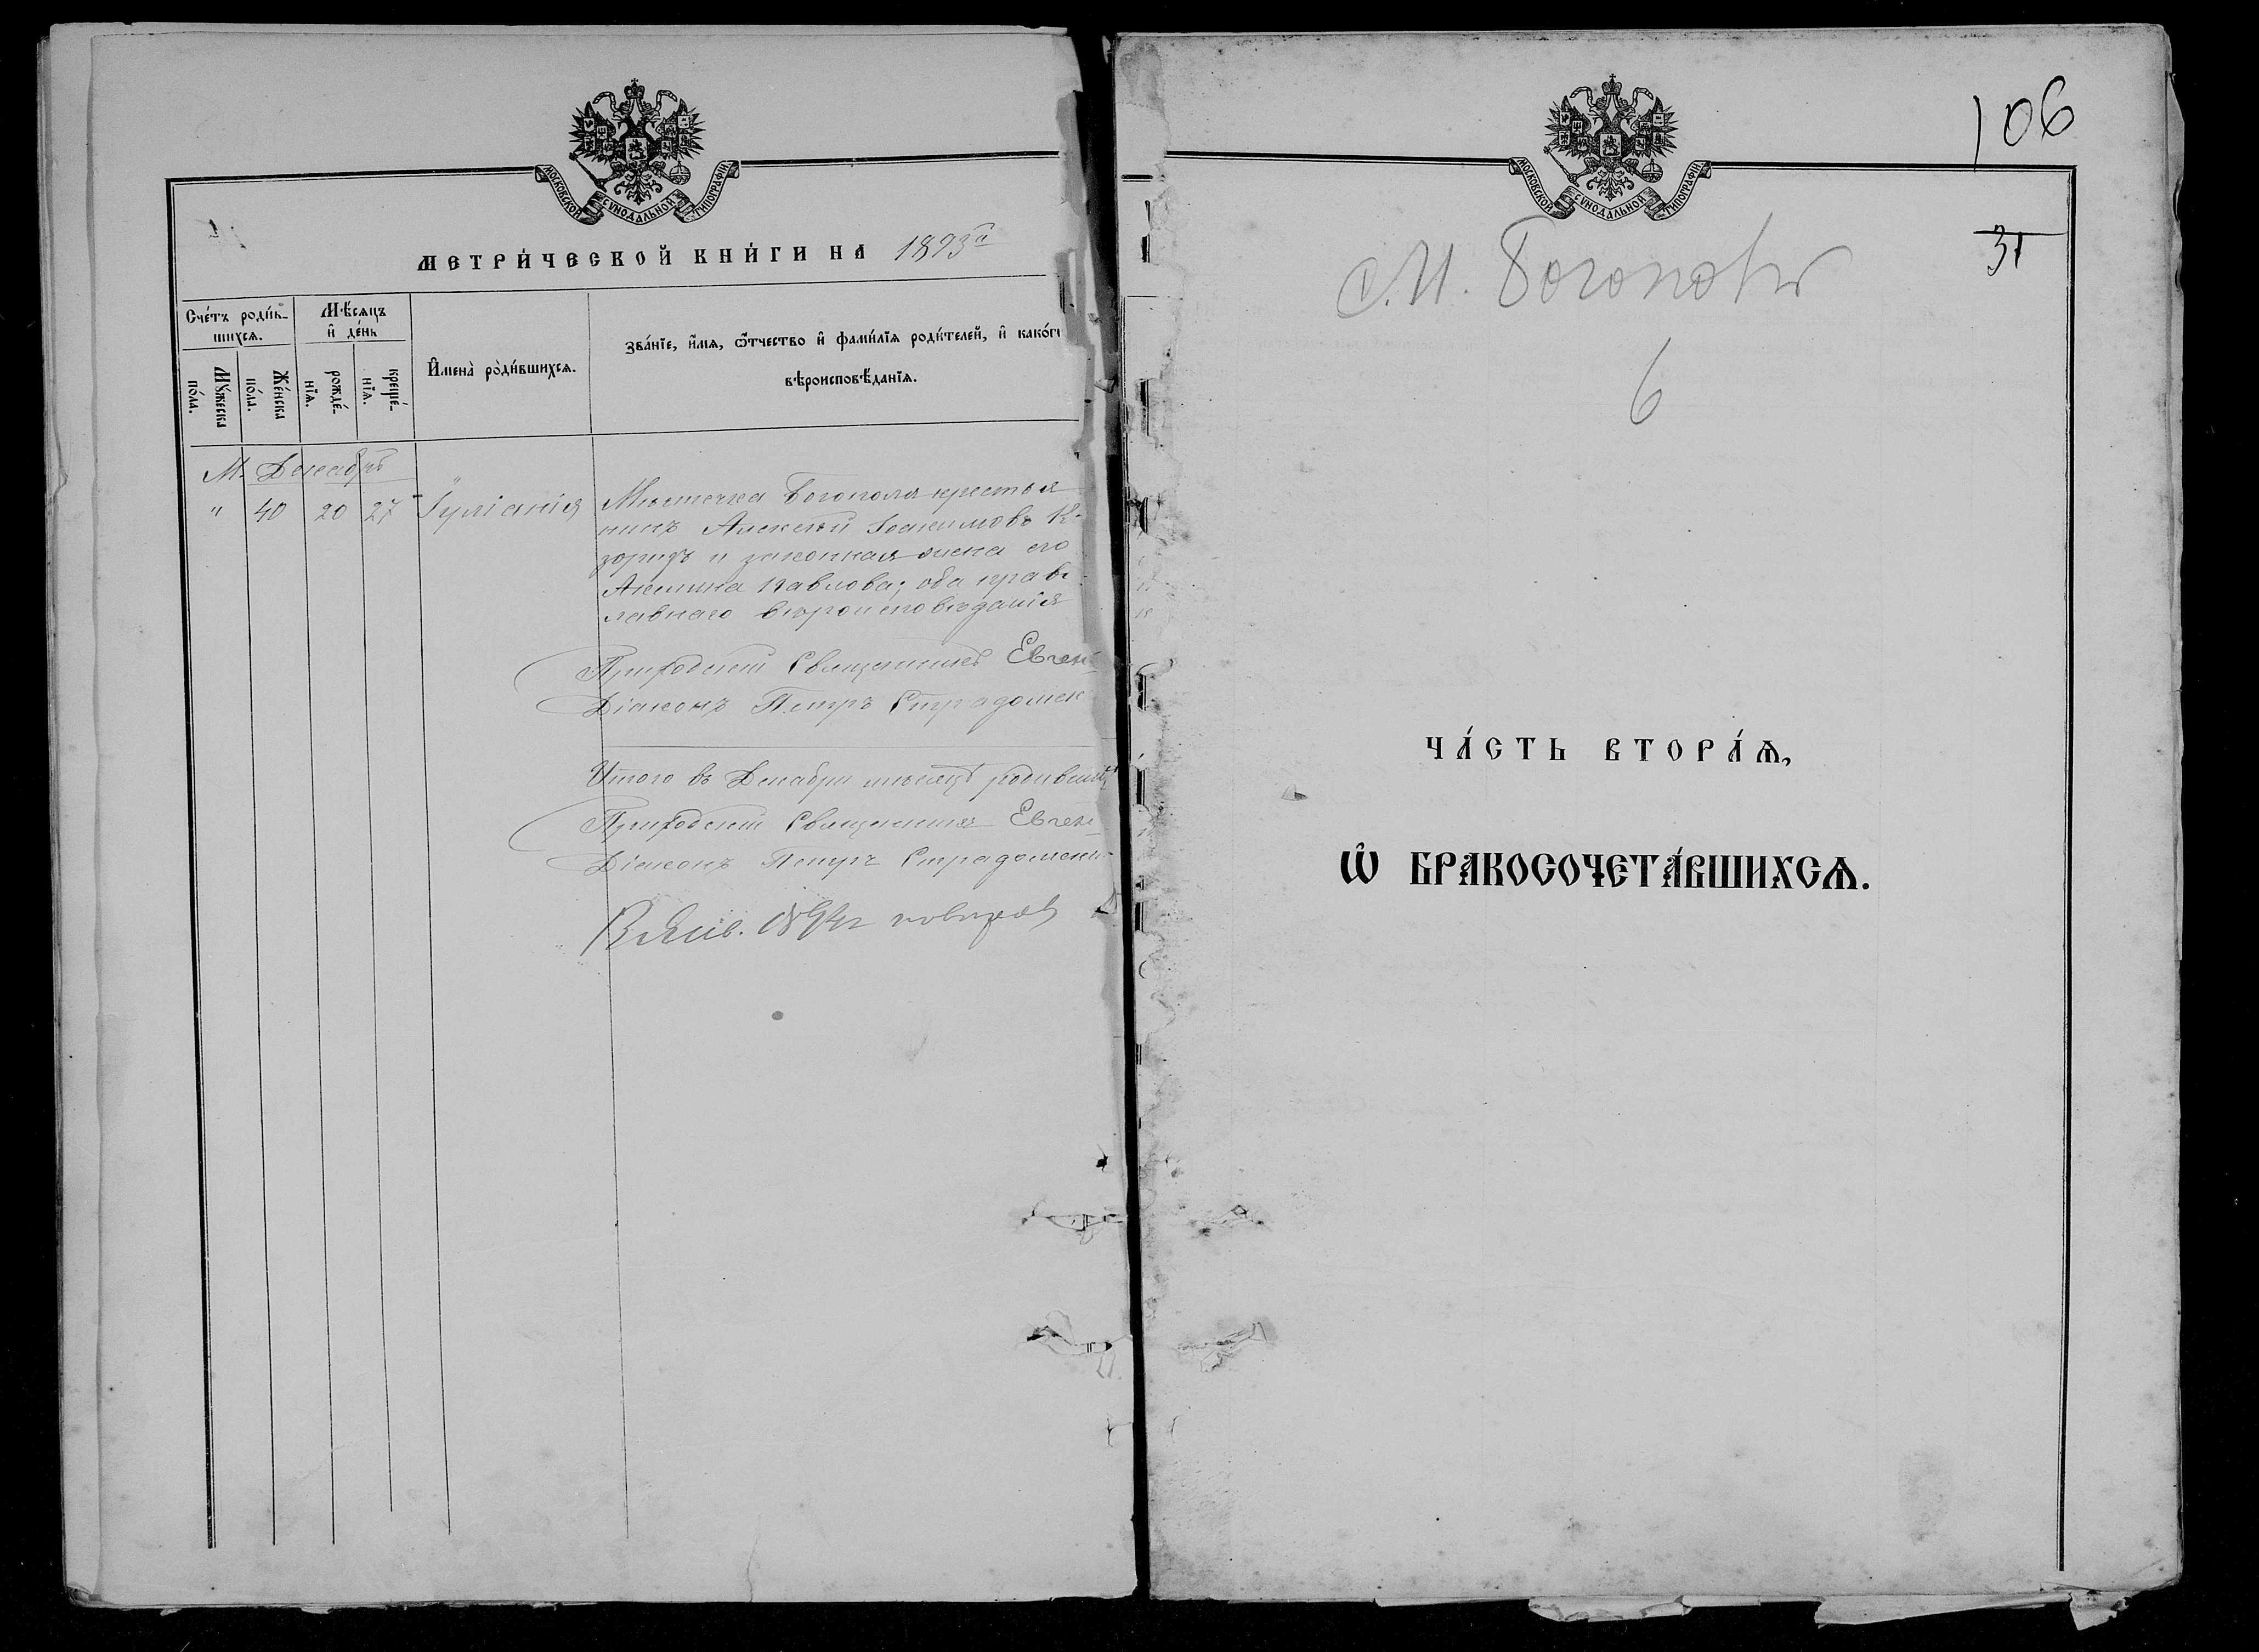 МОСКОВСКОЙ СѴНОДАЛЬНОЙ ТИПОГРАФІИ
МЕТРИ́ЧЕСКОЙ КНИ́ГИ НА 1893 г
Сче́тъ роди́в-
шихсѧ.
Мꙋ́жеска
по́ла.
Же́нска
по́ла.
Мѣ́сѧцъ
и҆ де́нь
рожде́-
нїѧ.
креще́-
нїѧ.
И҆мена̀ роди́вшихсѧ.
Зва́нїе, и҆́мѧ, ѻ҆́тчество и҆ фами́лїѧ роди́телей, и҆ како́гѡ
вѣроисповѣ́данїѧ.
М. Декабрь
" 40 20 27 Іуліанія
Мѣстечка Богополя крестья
нинъ Алексѣй Іоакимовъ
и законная жена его
Акилина Павлова; оба право
славнаго вѣроисповѣданія
Приходскій Священникъ Евген
Діаконъ Петръ Страдомск
Итого въ Декабрѣ мѣсяцѣ родивших
Приходскій Священникъ Евген
Діаконъ Петръ Страдомски
1894г
МОСКОВСКОЙ СѴНОДАЛЬНОЙ ТИПОГРАФІИ
106
31
м. Богополь
6
ЧА́СТЬ ВТОРА́Ѧ,
Ѽ БРАКОСОЧЕТА́ВШИХСѦ.